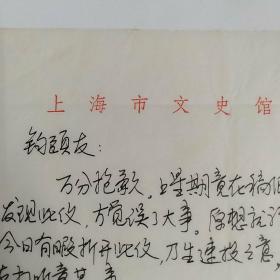 上海市文史馆
钧颐友：
万分抱歉。上星期竟在稿
发现此仪，方觉误了大事。原想就
今日有暇折开此仪，乃生速投之意